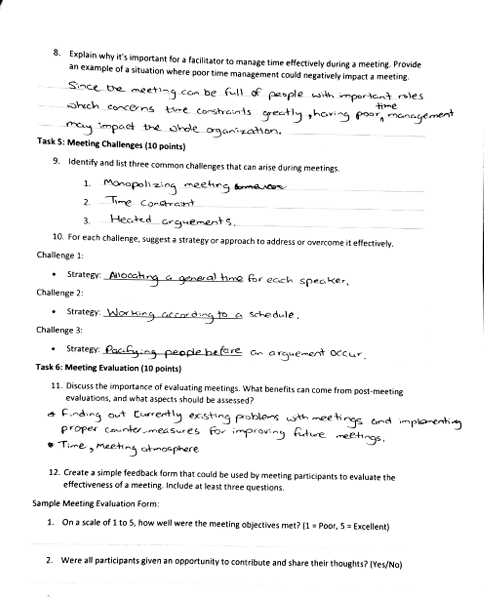 8. Explain why it's important for a facilitator to manage time effectively during a meeting. Provide
an example of a situation where poor time management could negatively impact a meeting.
Since the meeting can be full of people with important roles
which concerns time constraints greatly, having poor time management
may impact the whole organization.
Task 5: Meeting Challenges (10 points)
9. Identify and list three common challenges that can arise during meetings.
1. Monopolizing meeting
2. Time constraint
3. Heated arguements.
10. For each challenge, suggest a strategy or approach to address or overcome it effectively.
Challenge 1:
• Strategy: Allocating a general time for each speaker.
Challenge 2:
• Strategy: Working according to a schedule.
Challenge 3:
• Strategy: Pacifying people before an arguement occur.
Task 6: Meeting Evaluation (10 points)
11. Discuss the importance of evaluating meetings. What benefits can come from post-meeting
evaluations, and what aspects should be assessed?
• Finding out currently existing problems with meetings and implementing
proper counter-measures for improving future meetings.
• Time, Meeting atmosphere
12. Create a simple feedback form that could be used by meeting participants to evaluate the
effectiveness of a meeting. Include at least three questions.
Sample Meeting Evaluation Form:
1. On a scale of 1 to 5, how well were the meeting objectives met? (1 = Poor, 5 = Excellent)
2. Were all participants given an opportunity to contribute and share their thoughts? (Yes/No)